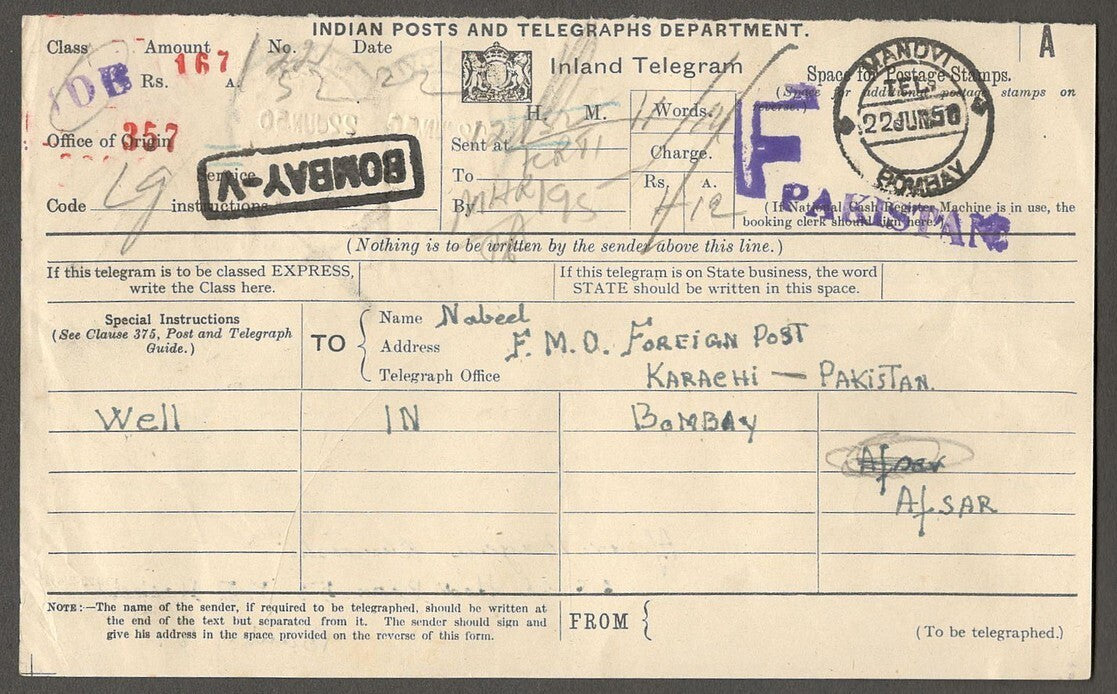 INDIAN POSTS AND TELEGRAPHS DEPARTMENT.
A
Class Amount No. Date
Rs. 167 A.
OB
Inland Telegram
Space for Postage Stamps.
(Space for additional postage stamps on reverse.)
MANDVI
TEL.
22JUN50
BOMBAY
H. M.
Words.
Office of Origin
357
Sent at
Charge.
F
Service
BOMBAY-V
To
Rs. A.
Code instructions
By
(If National Cash Register Machine is in use, the
booking clerk should sign here.)
PAKISTAN
(Nothing is to be written by the sender above this line.)
If this telegram is to be classed EXPRESS,
write the Class here.
If this telegram is on State business, the word
STATE should be written in this space.
Special Instructions
(See Clause 375, Post and Telegraph
Guide.)
TO
Name Nabeel
Address F. M. O. FOREIGN POST
Telegraph Office KARACHI — PAKISTAN.
Well IN BOMBAY
Afsar
AfSAR
NOTE:—The name of the sender, if required to be telegraphed, should be written at
the end of the text but separated from it. The sender should sign and
give his address in the space provided on the reverse of this form.
FROM
(To be telegraphed.)